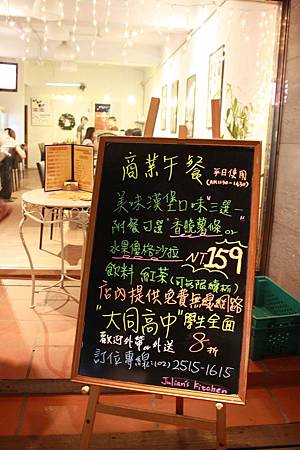 商業午餐 平日使用
(AM11:30~14:30)
美味漢堡口味"三選一
附餐可選"香脆薯條or
水果優格沙拉 NT159
飲料 紅茶(可無限續杯)
店內提供免費無線網路
"大同高中"學生全面
歡迎外帶or外送 8折
訂位專線:(02)2515-1615
Julian's Kitchen